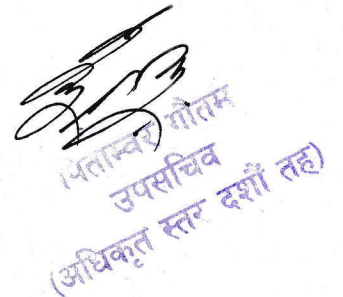 पिताम्वर गौतम
उपसचिव
(अधिकृत स्तर दशौं तह)